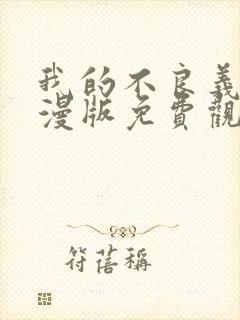 我的不良義
漫版免費觀
符蓓稱